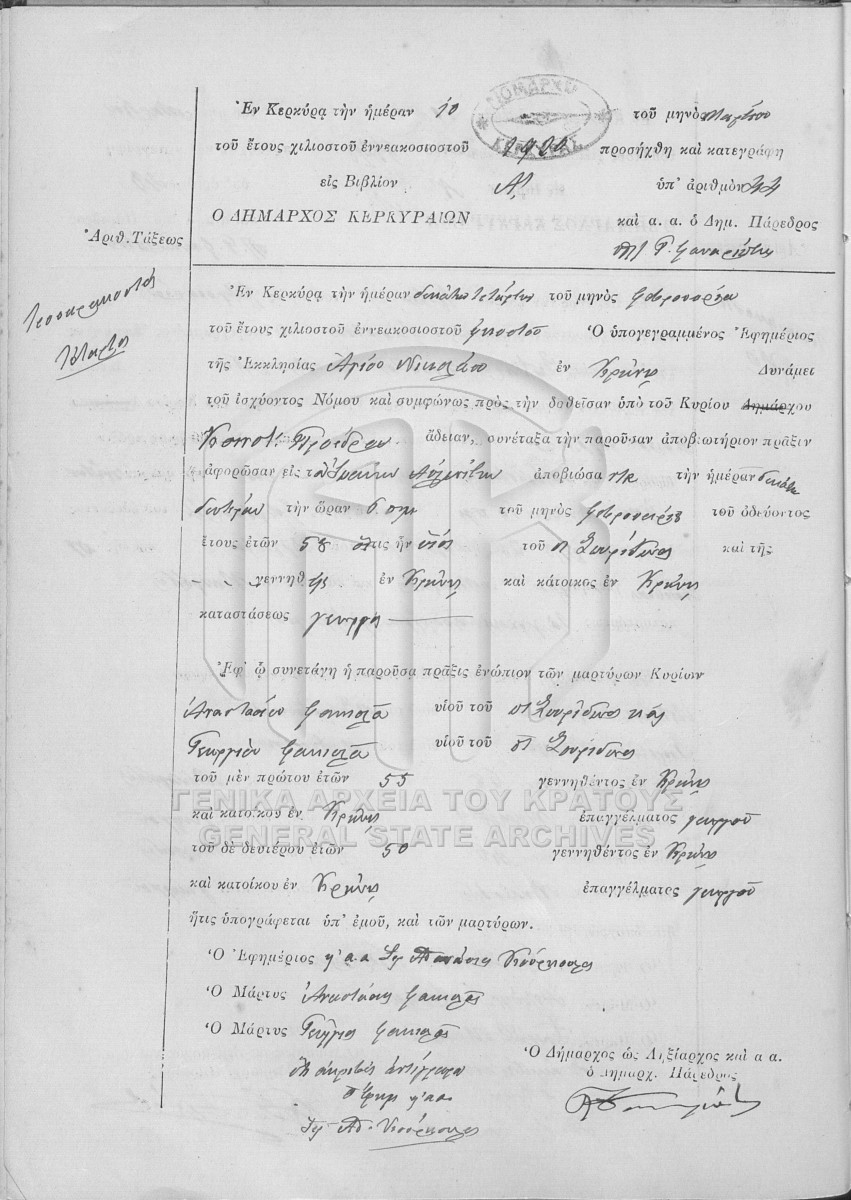 Ἐν Κερκύρᾳ τὴν ἡμέραν 10 τοῦ μηνὸς Μαρτίου
τοῦ ἔτους χιλιοστοῦ ἐννεακοσιοστοῦ 1920 προσήχθη καὶ κατεγράφη
εἰς Βιβλίον Α! ὑπ' ἀριθμὸν 44
Ο ΔΗΜΑΡΧΟΣ ΚΕΡΚΥΡΑΙΩΝ καὶ α. α. ὁ Δημ. Πάρεδρος
Ἀριθ. Τάξεως
Τεσσαρακοστὴ
Τετάρτη
Ἐν Κερκύρᾳ τὴν ἡμέραν δεκάτην τετάρτην τοῦ μηνὸς Φεβρουαρίου
τοῦ ἔτους χιλιοστοῦ ἐννεακοσιοστοῦ εἰκοστοῦ Ὁ ὑπογεγραμμένος Ἐφημέριος
τῆς Ἐκκλησίας Ἁγίου Νικολάου ἐν Κρήνης Δυνάμει
τοῦ ἰσχύοντος Νόμου καὶ συμφώνως πρὸς τὴν δοθεῖσαν ὑπὸ τοῦ Κυρίου Δημάρχου
Κοινοτ. Προέδρου ἄδειαν, συνέταξα τὴν παροῦσαν ἀποβιωτήριον πρᾶξιν
ἀφορῶσαν εἰς τὸν ἀποβιώσαντα τὴν ἡμέραν δεκάτην
δευτέραν τὴν ὥραν 6 π.μ. τοῦ μηνὸς Φεβρουαρίου τοῦ ὁδεύοντος
ἔτους ἐτῶν 58 ὅστις ἦν υἱὸς τοῦ Σπυρίδωνος καὶ τῆς
γεννηθεὶς ἐν Κρήνης καὶ κάτοικος ἐν Κρήνης
καταστάσεως γεωργὸς
Ἐφ' ᾧ συνετάγη ἡ παροῦσα πρᾶξις ἐνώπιον τῶν μαρτύρων Κυρίων
Ἀναστασίου Φακιολᾶ υἱοῦ τοῦ Σπυρίδωνος καὶ
Γεωργίου Φακιολᾶ υἱοῦ τοῦ Σπυρίδωνος
τοῦ μὲν πρώτου ἐτῶν 55 γεννηθέντος ἐν Κρήνης
καὶ κατοίκου ἐν Κρήνης ἐπαγγέλματος γεωργοῦ
ΓΕΝΙΚΑ ΑΡΧΕΙΑ ΤΟΥ ΚΡΑΤΟΥΣ
GENERAL STATE ARCHIVES
τοῦ δὲ δευτέρου ἐτῶν 50 γεννηθέντος ἐν Κρήνης
καὶ κατοίκου ἐν Κρήνης ἐπαγγέλματος γεωργοῦ
ἥτις ὑπογράφεται ὑπ' ἐμοῦ, καὶ τῶν μαρτύρων.
Ὁ Ἐφημέριος
Ὁ Μάρτυς Ἀναστάσιος Φακιολᾶς
Ὁ Μάρτυς Γεώργιος Φακιολᾶς
Ὁ Δήμαρχος ὡς Ληξίαρχος καὶ α. α.
ὁ Δημαρχ. Πάρεδρος